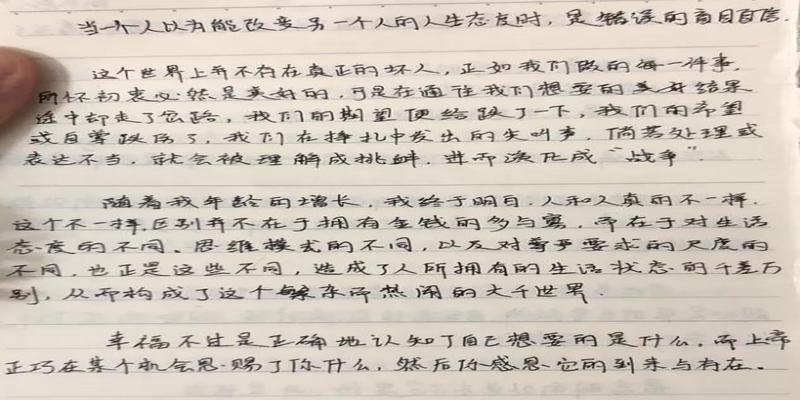 当一个人以为能改变另一个人的人生态度时，是错误的盲目自信．
这个世界上并不存在真正的坏人，正如我们做的每一件事．
所怀初衷必然是美好的，可是在通往我们想要的美好结果
途中却走了岔路，我们的期望便给跌了一下，我们的希望
或自尊跌伤了，我们在挣扎中发出的尖叫声，倘若处理或
表达不当，就会被理解成挑衅．进而演化成“战争”．
随着我年龄的增长，我终于明白，人和人真的不一样．
这个不一样，区别并不在于拥有金钱的多与寡，而在于对生活
态度的不同、思维模式的不同，以及对尊严要求的尺度的
不同，也正是这些不同，造成了人所拥有的生活状态的千差万
别，从而构成了这个繁杂而热闹的大千世界．
幸福不过是正确地认知了自己想要的是什么，而上帝
正巧在某个机会恩赐了你什么，然后你感恩它的到来与存在．